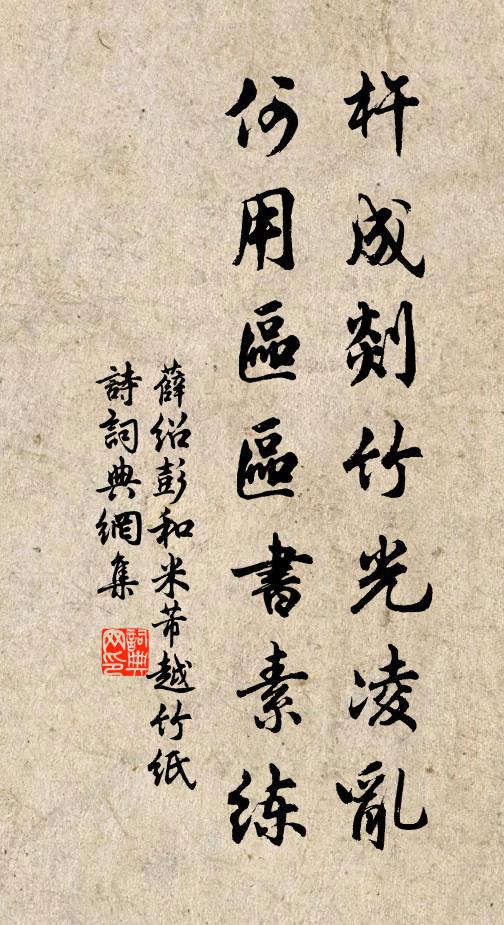 杵成剡竹光凌亂
何用區區書素練
薛绍彭和米芾越竹紙
詩詞典網集
詞典网印